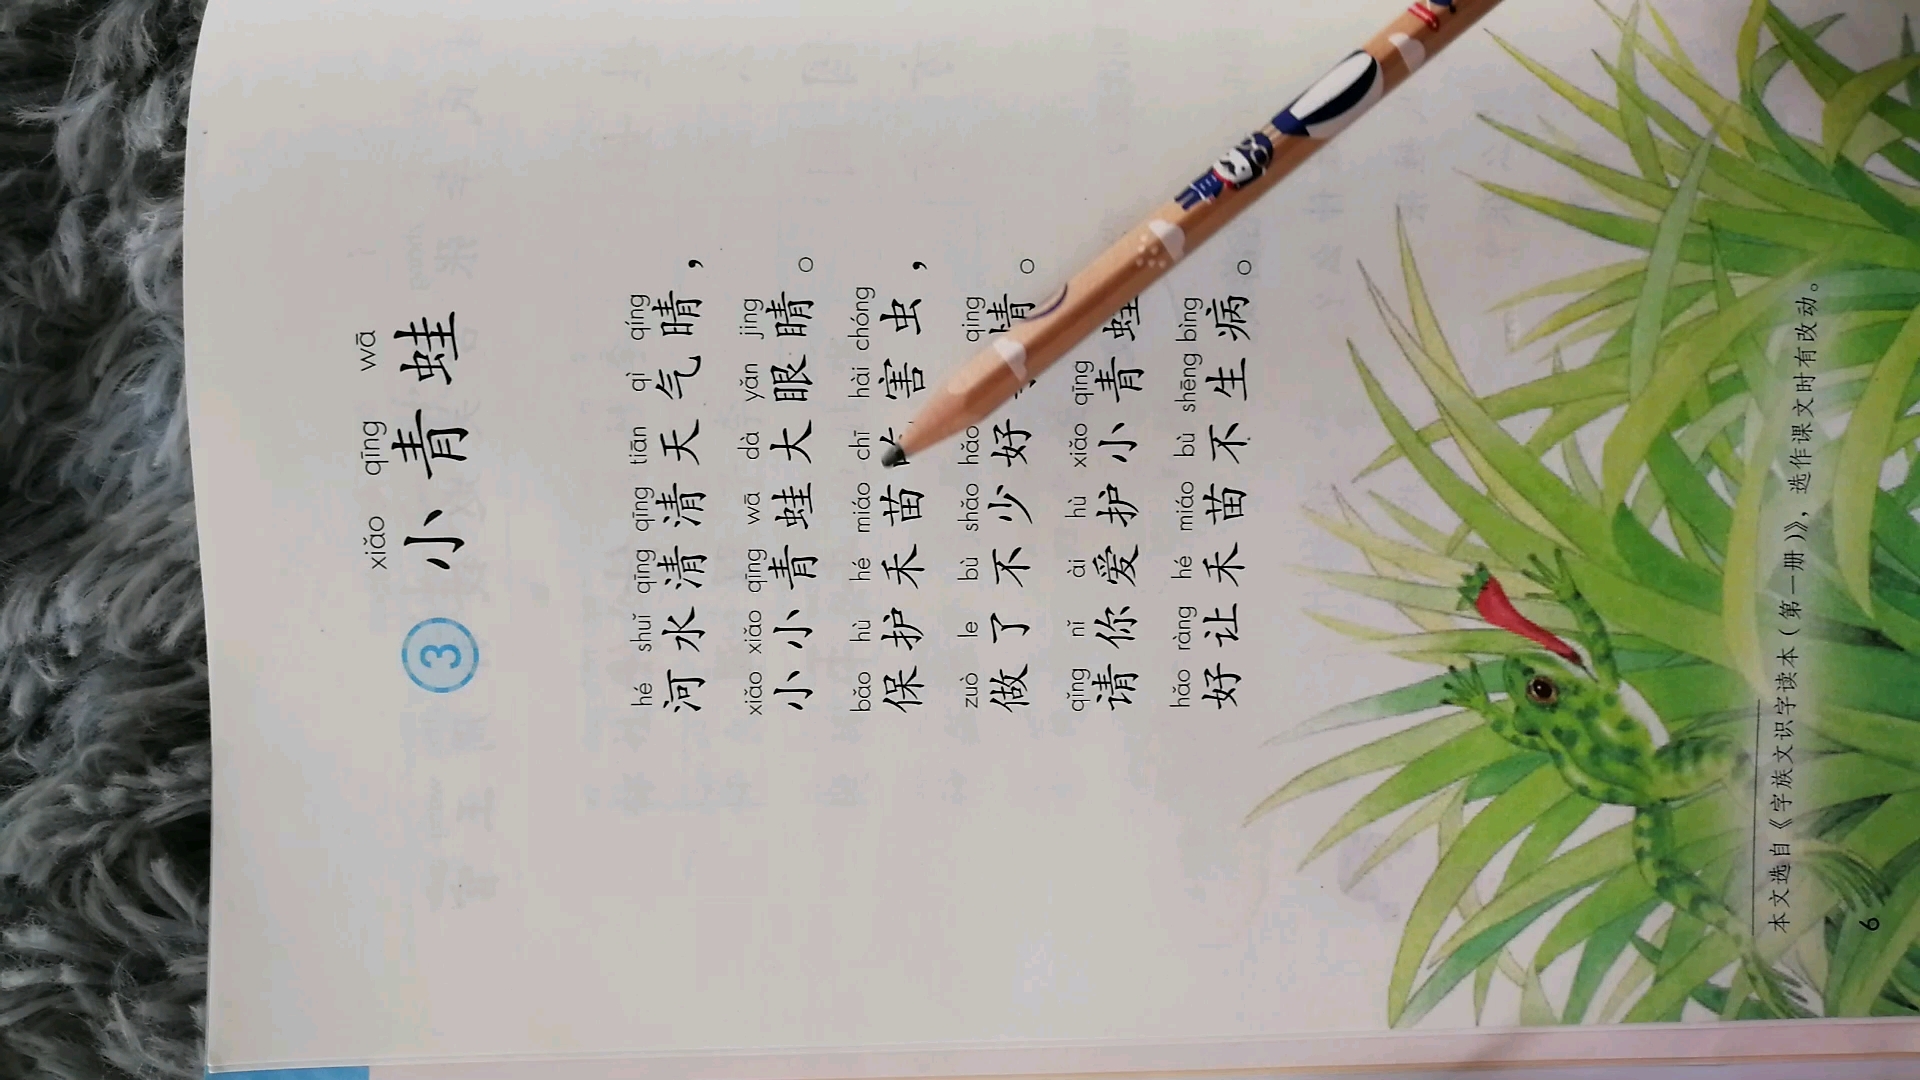 xiǎo qīng wā
3 小青蛙
hé shuǐ qīng qīng tiān qì qíng
河水清清天气晴，
xiǎo xiǎo qīng wā dà yǎn jīng
小小青蛙大眼睛。
bǎo hù hé miáo chī hài chóng
保护禾苗害虫，
zuò le bù shǎo hǎo qing
做了不少好情。
qǐng nǐ ài hù xiǎo qīng
请你爱护小青蛙
hǎo ràng hé miáo bù shēng bìng
好让禾苗不生病。
本文选自《字族文识字读本（第一册）》，选作课文时有改动。
6